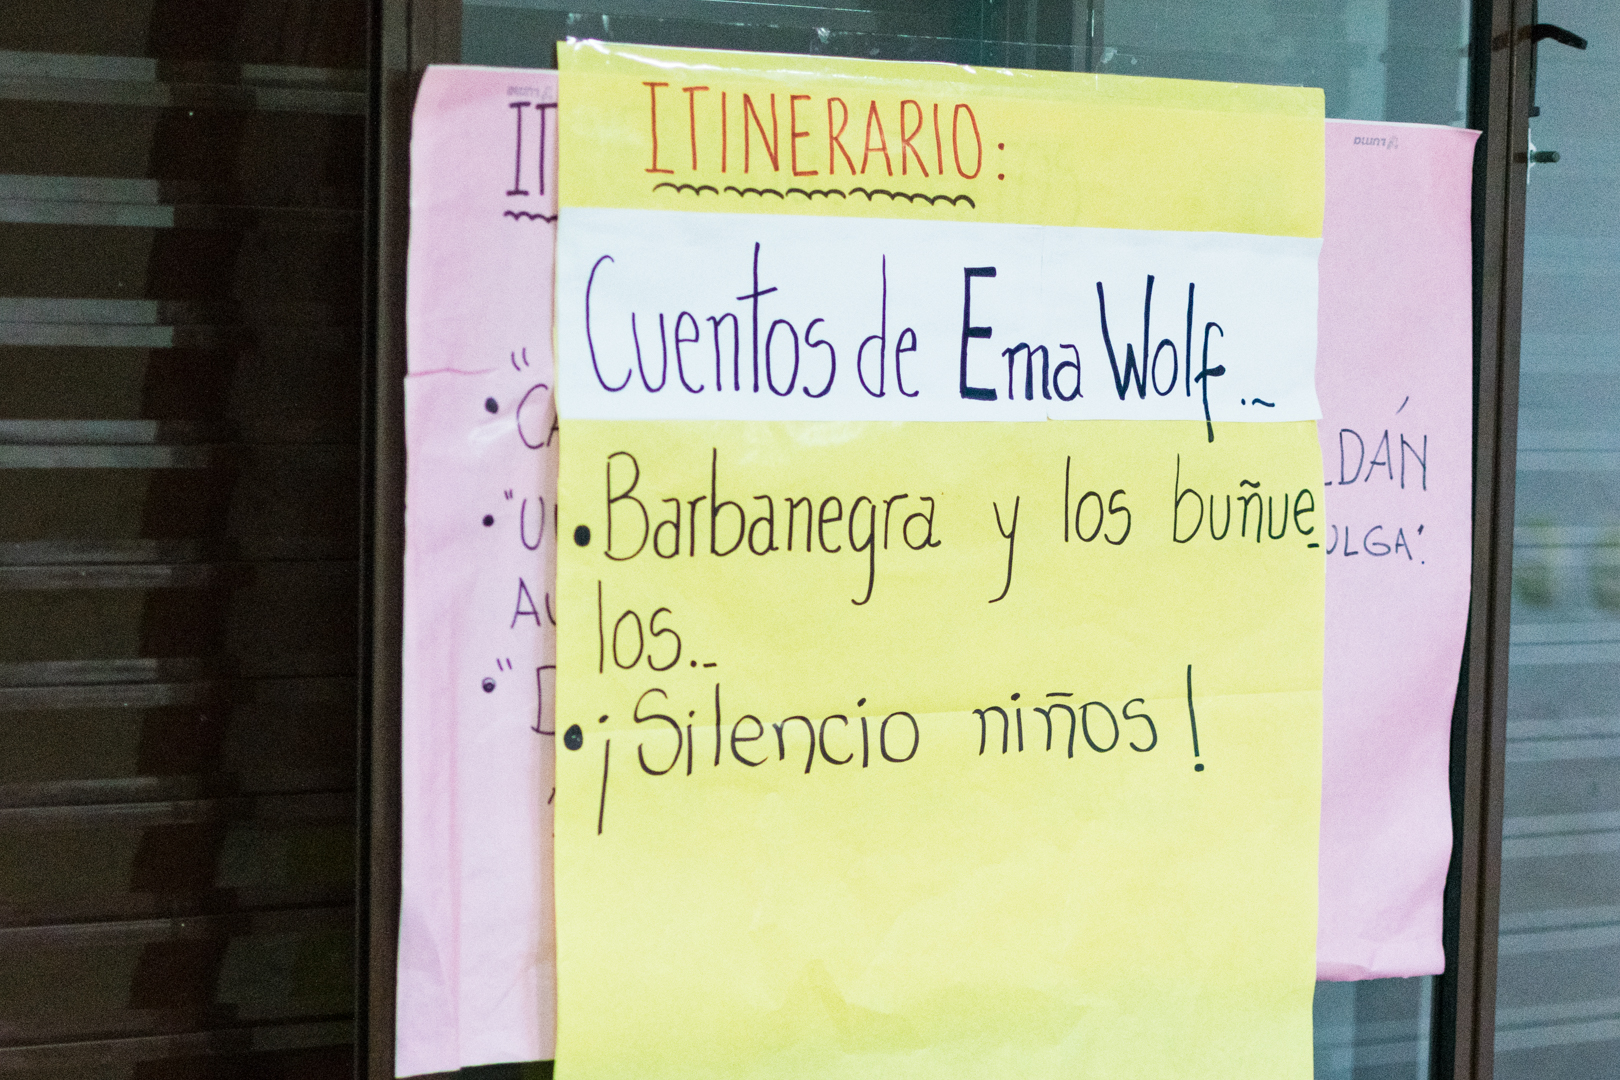 ITINERARIO:
Cuentos de Ema Wolf..~
• Barbanegra y los buñue_
los.._
• ¡Silencio niños!
LDÁN
ULGA".
Luma